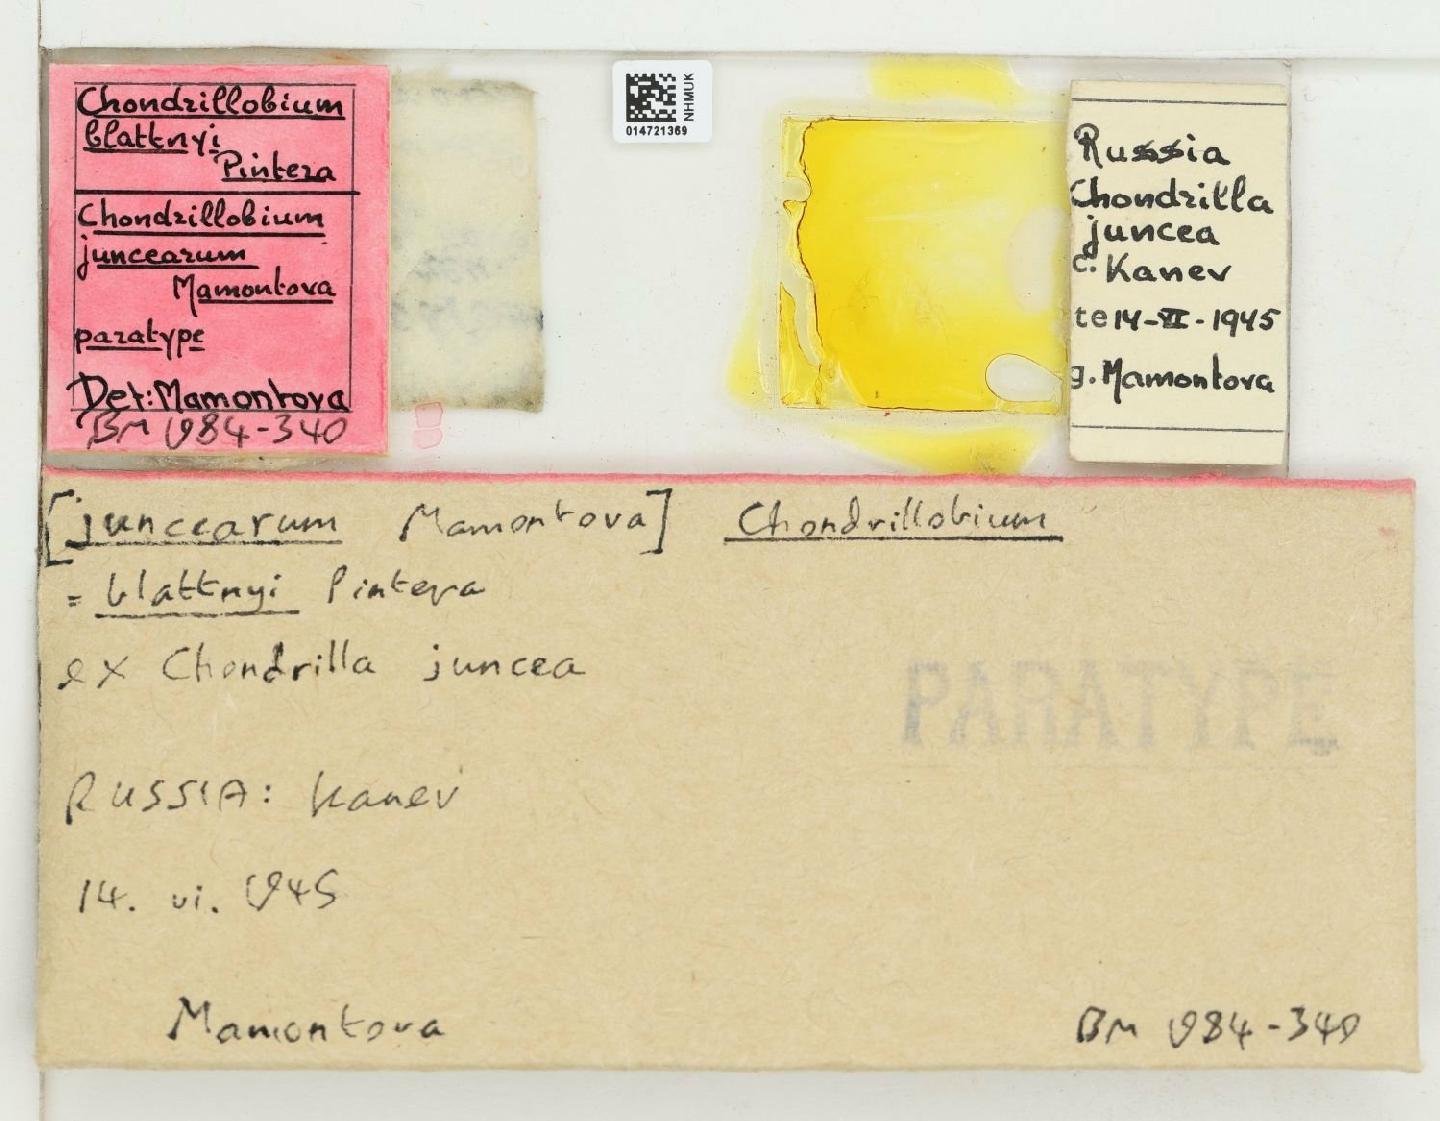 Chondrillobium
blattnyi
Pintera
Chondrillobium
juncearum
Mamontova
paratype
Det:Mamontova
BM 1984-340
NHMUK
014721369
Russia
Chondrilla
juncea
c. Kanev
te 14-VI-1945
g. Mamontova
[juncearum Mamontova] Chondrillobium
= blattnyi Pintera
ex Chondrilla juncea
PARATYPE
RUSSIA: Kanev
14. vi. 1945
Mamontova
BM 1984-340